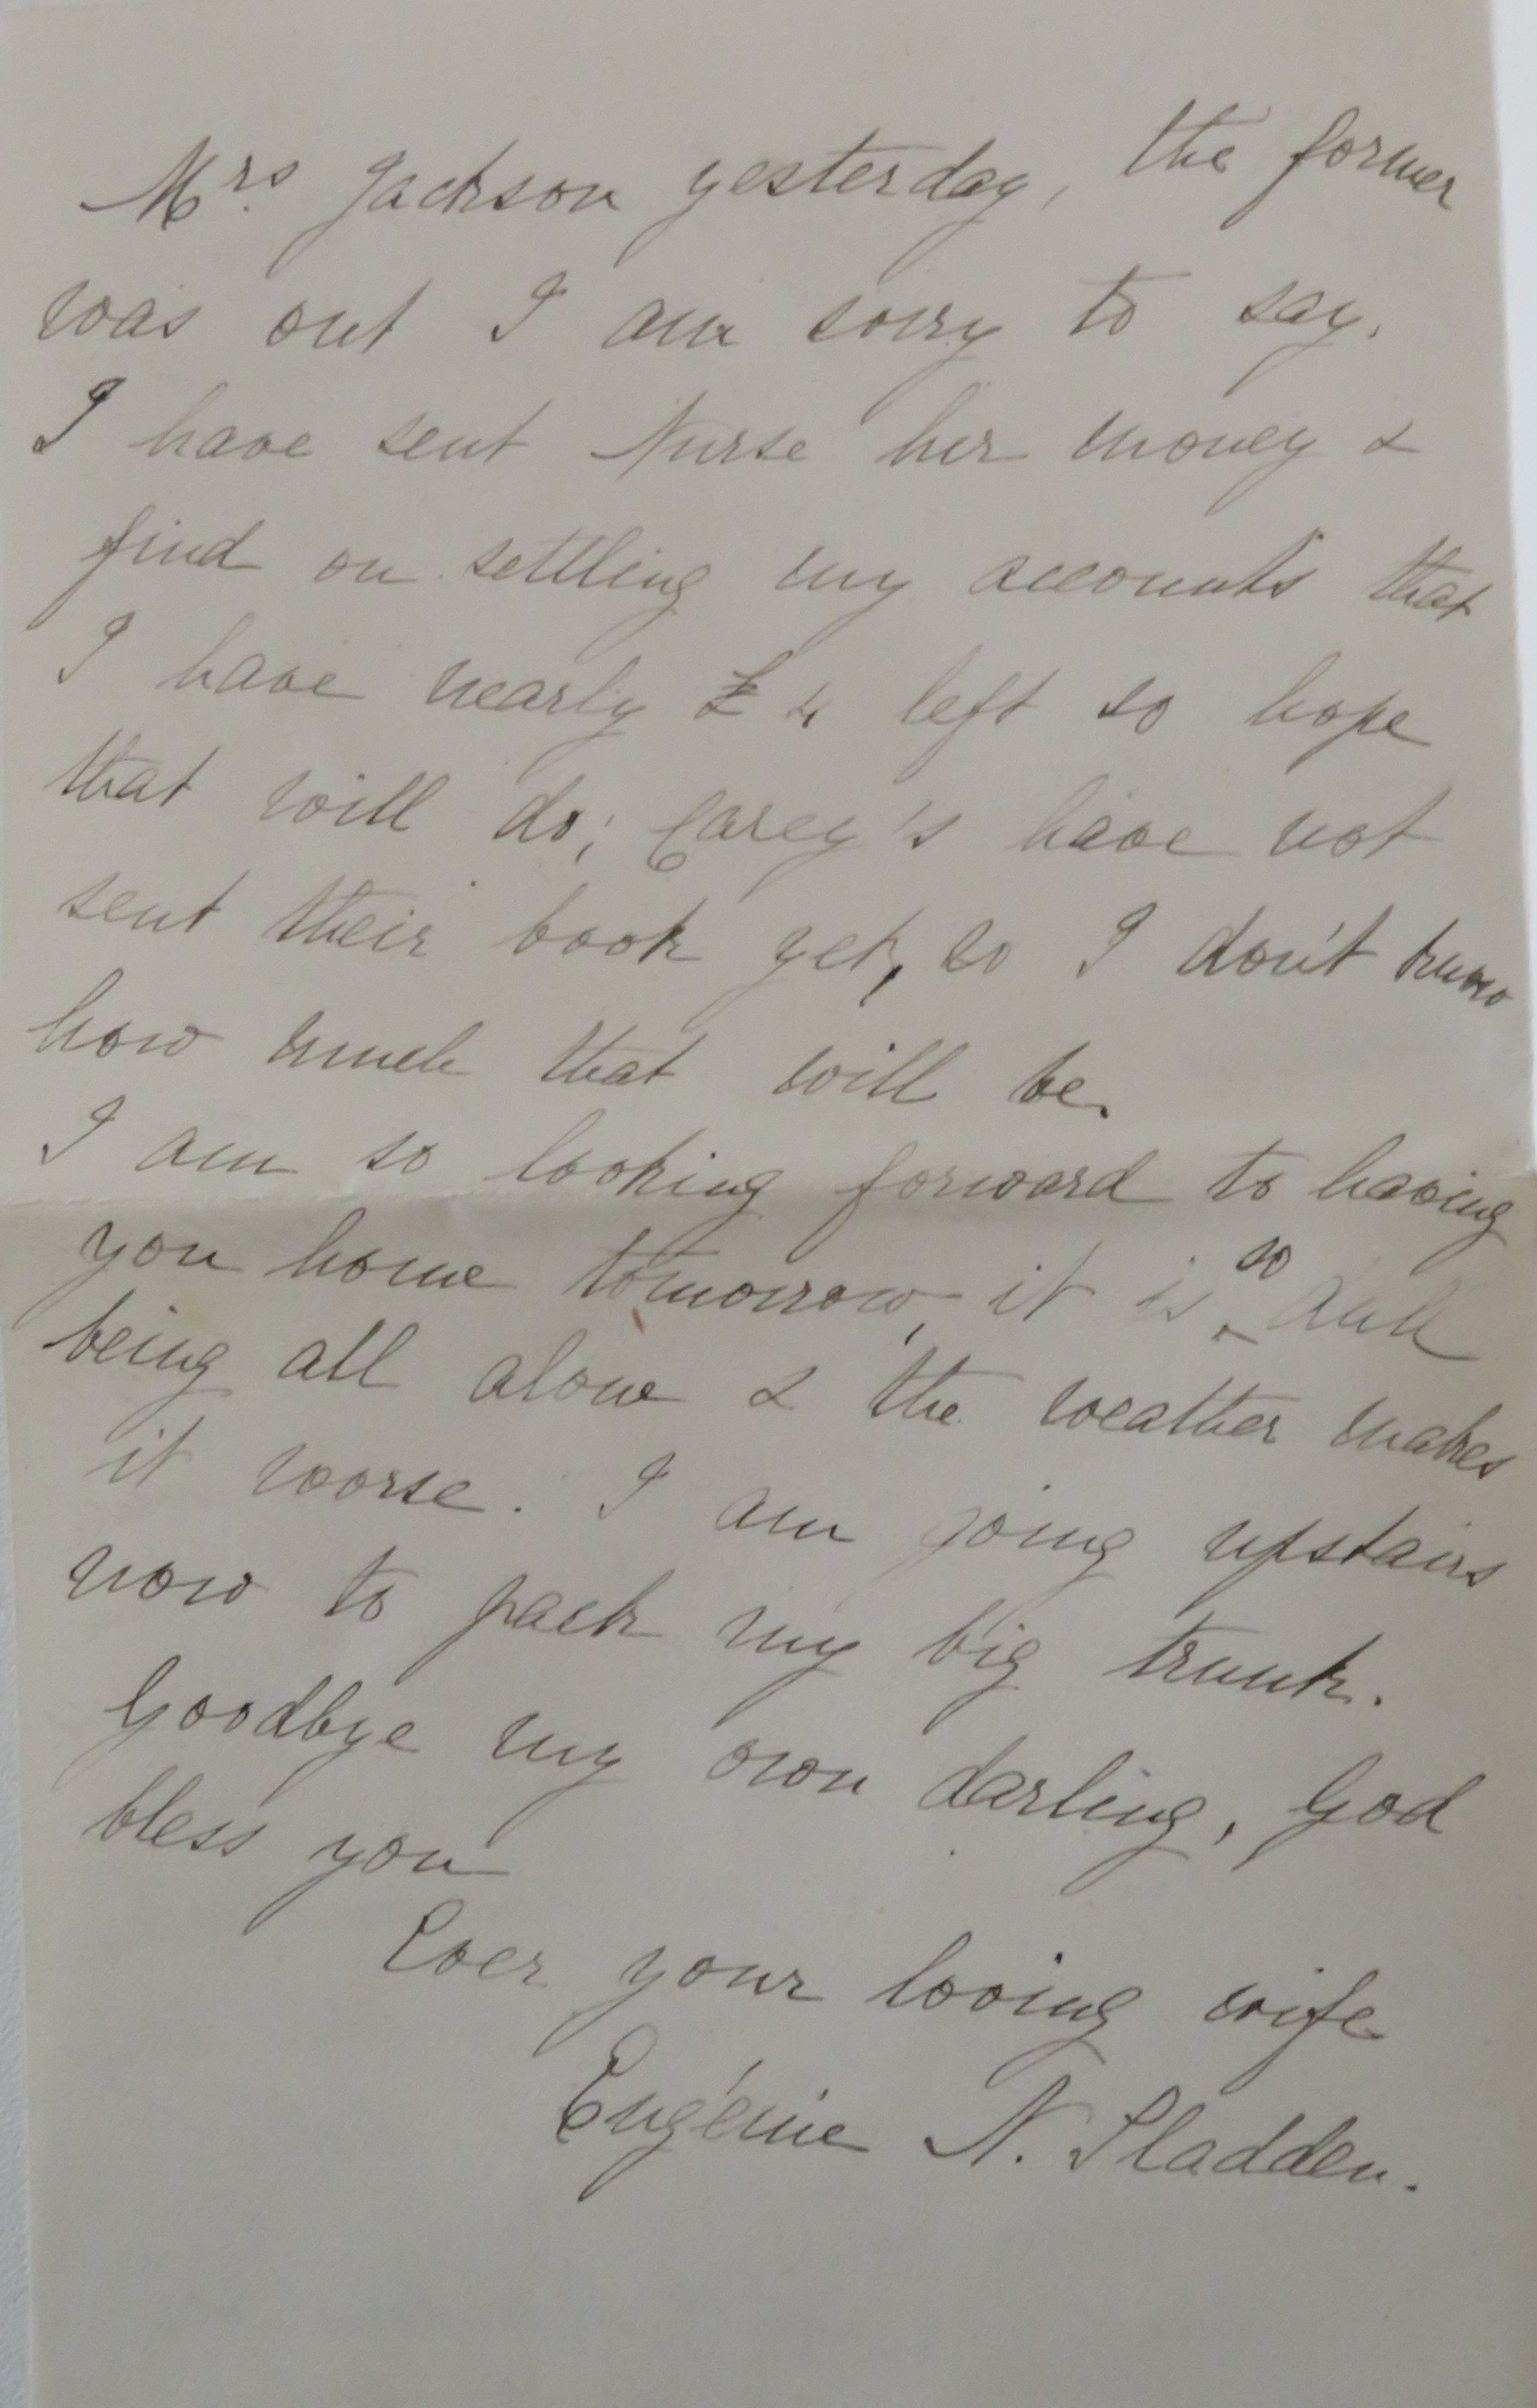 Mrs. Jackson yesterday, the former
was out I am sorry to say.
I have sent Nurse her money &
find on settling my accounts that
I have nearly £4 left so hope
that will do; Carey's have not
sent their book yet, so I don't know
how much that will be.
I am so looking forward to having
you home tomorrow, it is so dull
being all alone & the weather makes
it worse. I am going upstairs
now to pack my big trunk.
Goodbye my own darling, God
bless you
Ever your loving wife
Eugénie N. Sladden.